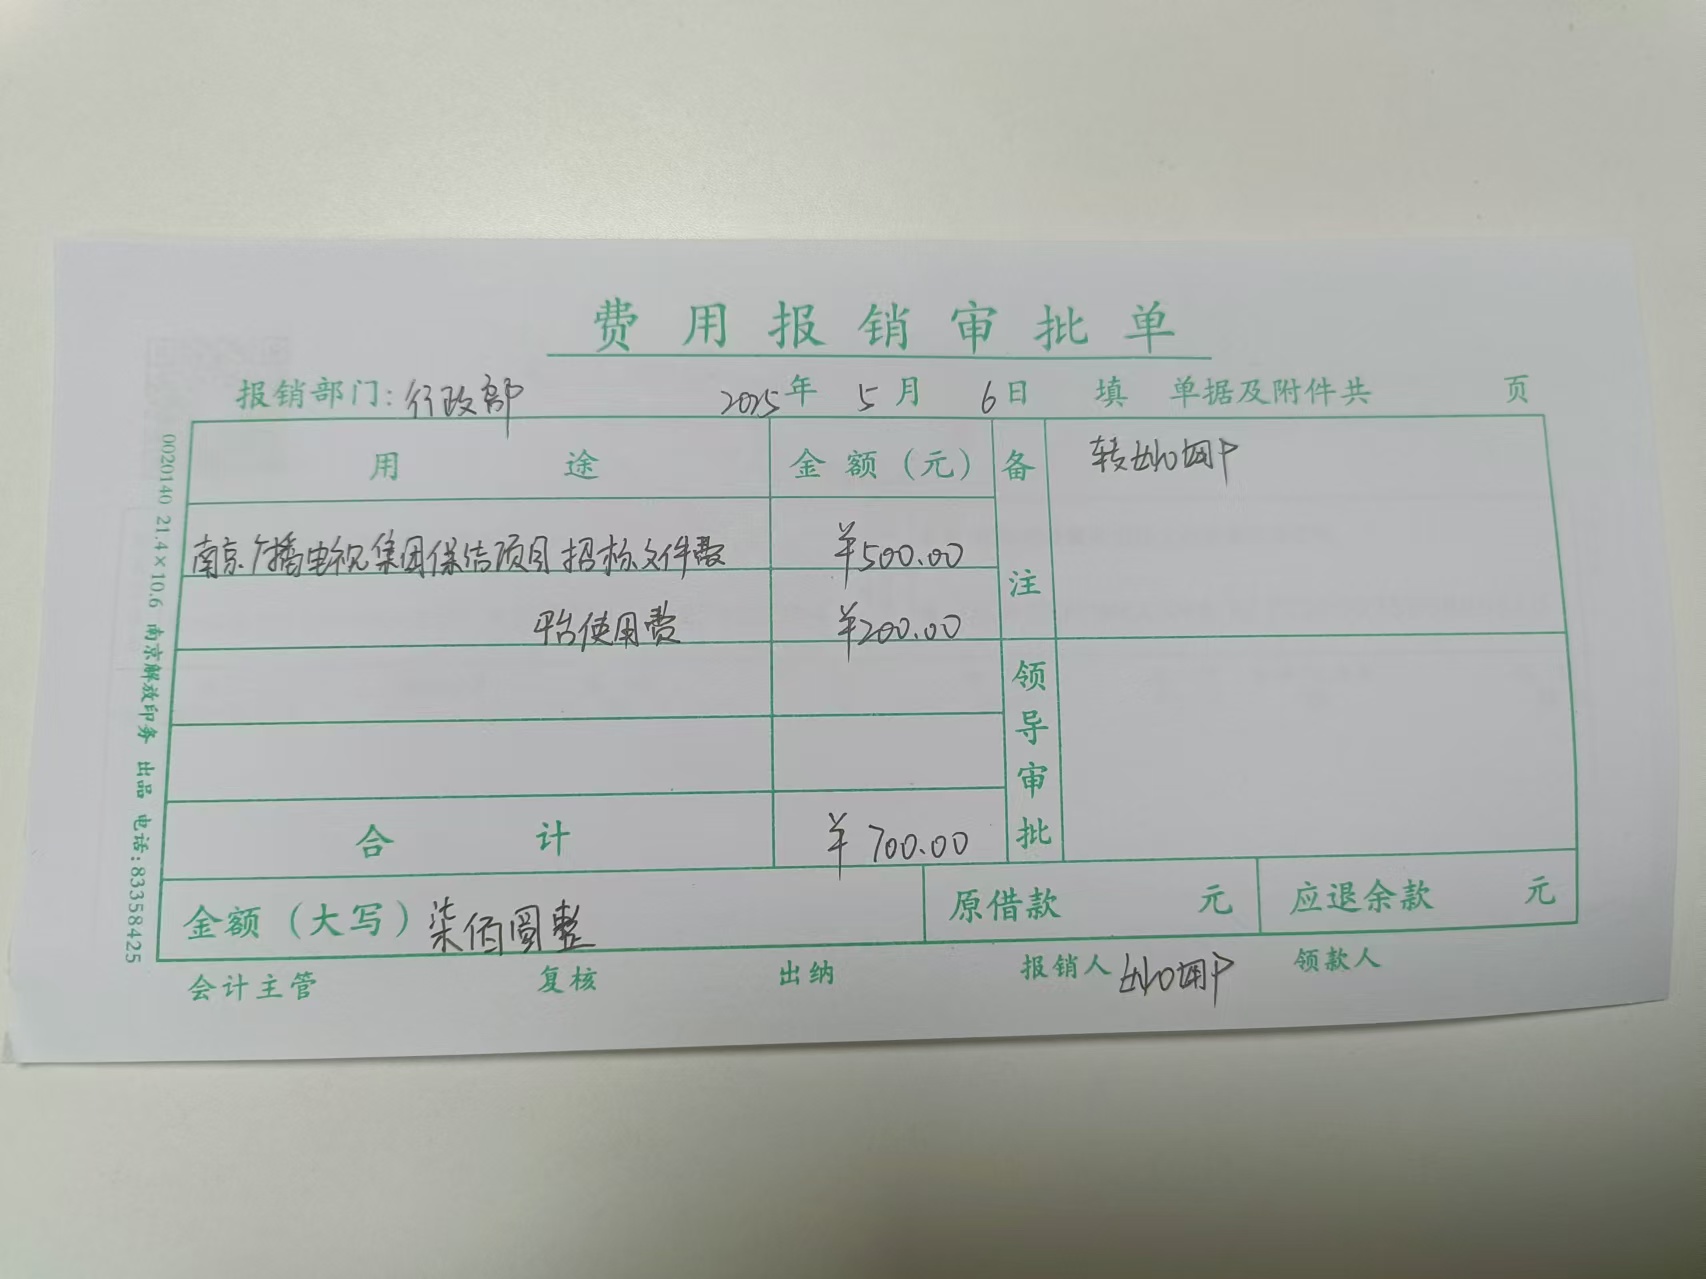 费用报销审批单
报销部门: 行政部 2025年 5月 6日 填 单据及附件共 页
用途 金额(元) 备注 转
南京广播电视集团保洁项目招标文件费 ¥500.00
平台使用费 ¥200.00
领导审批
合计 ¥700.00
金额(大写) 柒佰圆整 原借款 元 应退余款 元
会计主管 复核 出纳 报销人 领款人
0020140 21.4×10.6 南京解放印务 出品 电话:83358425